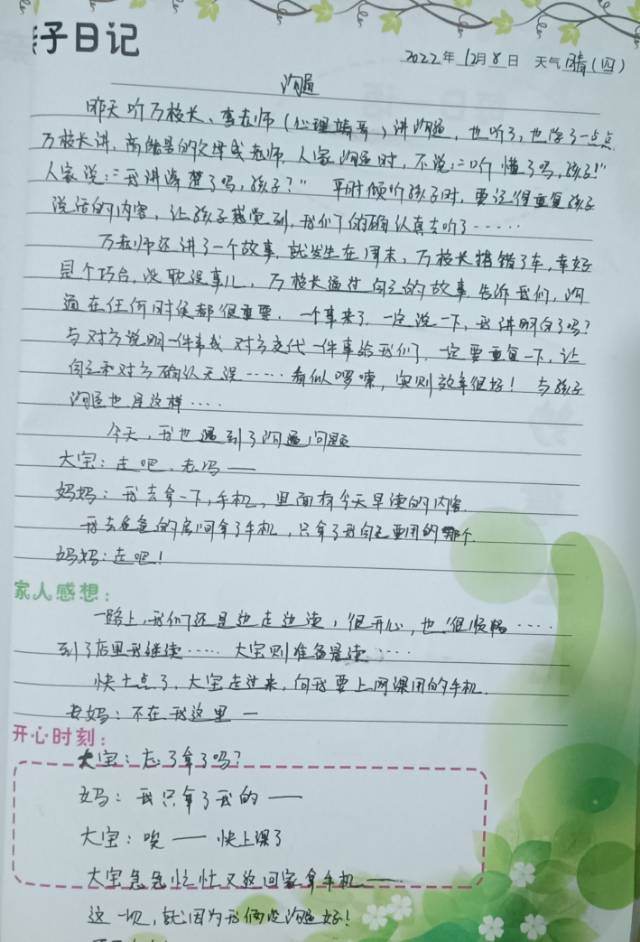 子日记
2022年 12月 8日 天气 晴(四)
沟通
昨天听万校长、李老师(心理辅导)讲沟通,也听了,也学了一点点
万校长讲,高能量的父母或老师,人家沟通时,不说:“听懂了吗,孩子!”
人家说:“我讲清楚了吗,孩子?” 平时倾听孩子时,要记得重复孩子
说话的内容,让孩子感觉到,我们的确认真去听了……
万老师还讲了一个故事,就发生在周末,万校长指错了车,幸好
是个巧合,没耽误事儿,万校长通过自己的故事,告诉我们,沟
通在任何时候都很重要,一个事来了,一定说一下,我讲明白了吗?
与对方说明一件事或对方交代一件事给我们,一定要重复一下,让
自己和对方确认无误……看似啰嗦,实则效率很好!与孩子
沟通也是这样……
今天,我也遇到了沟通问题
大宝:走吧,老妈——
妈妈:我去拿一下,手机,里面有今天早读的内容.
我去爸爸的房间拿了手机,只拿了我自己要用的那个.
妈妈:走吧!
家人感想:
一路上,我们还是边走边读,很开心,也很顺畅……
到了店里我继续……大宝则准备晨读……
快十点了,大宝走过来,向我要上网课用的手机.
老妈:不在我这里—
开心时刻:
大宝:忘了拿了吗?
老妈:我只拿了我的——
大宝:唉——快上课了
大宝急急忙忙又返回家拿手机——
这一切,就因为我俩没沟通好!